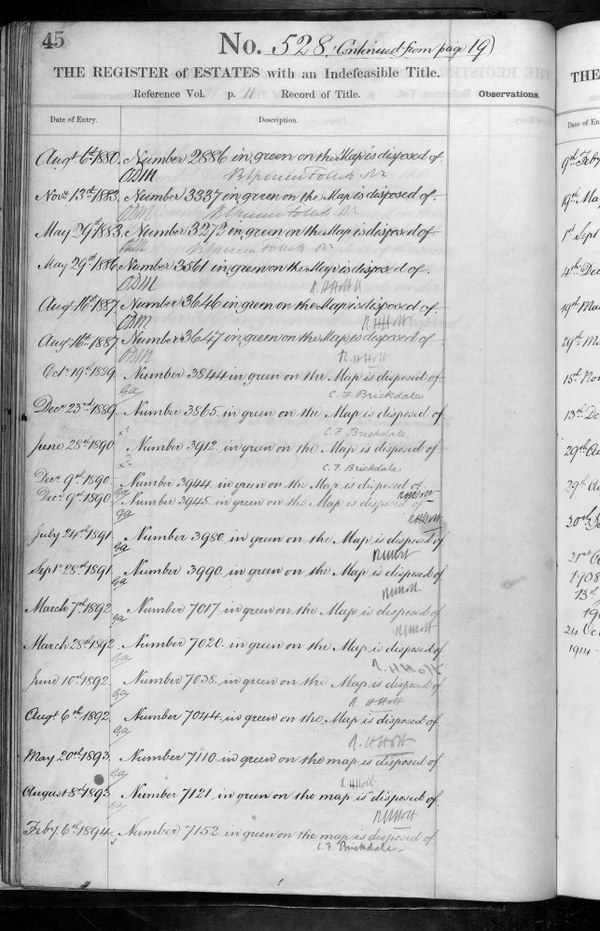 45
No. 528. (Continued from page 19)
THE REGISTER of ESTATES with an Indefeasible Title.
Reference Vol. p. 11 Record of Title. Observations.
Date of Entry. Description.
Augt 6th 1880. Number 2886 in green on the Map is disposed of.
ODM
Novr 13th 1883. Number 3337 in green on the Map is disposed of.
ODM
May 29th 1883. Number 3272 in green on the Map is disposed of
ODM
May 29th 1886 Number 3561 in green on the Map is disposed of.
ODM R. H Holt
Augt 16th 1887. Number 3646 in green on the Map is disposed of.
ODM R. H Holt
Augt 16th 1887 Number 3647 in green on the Map is disposed of
ODM R. H Holt
Octr 19th 1889. Number 3844 in green on the Map is disposed of
Ga C. F. Brickdale
Decr 23rd 1889. Number 3865. in green on the Map is disposed of
C. F. Brickdale
June 28th 1890 Number 3912. in green on the Map is disposed of
C. F. Brickdale
Decr. 9th 1890. Number 3944. in green on the Map is disposed of
Ga RHHolt
Decr. 9th 1890 Number 3945. in green on the Map is disposed of
Ga RHHolt
July 24th 1891. Number 3980. in green on the Map is disposed of
Ga RHHolt
Septr 28th 1891. Number 3990. in green on the Map is disposed of
Ga RHHolt
March 7th 1892. Number 7017. in green on the Map is disposed of
Ga RHHolt
March 28th 1892 Number 7020. in green on the Map is disposed of
Ga R. H Holt
June 10th 1892. Number 7038. in green on the Map is disposed of
Ga R. H Holt
Augt 6th 1892. Number 7044. in green on the Map is disposed of
Ga R. H Holt
May 20th 1893. Number 7110. in green on the map is disposed of
Ga R. H Holt
August 8th 1893 Number 7121. in green on the map is disposed of
Ga RHHolt
Feby. 6th 1894. Number 7152. in green on the map is disposed of
C. F. Brickdale.
THE
Date of En
9th Feby
19th Ma
1st Sept
4th Dec
19th Ma
29th Ma
15th Nov
13th De
29th Au
30th Ja
21st Oc
1908
13th
24 Oct
1914